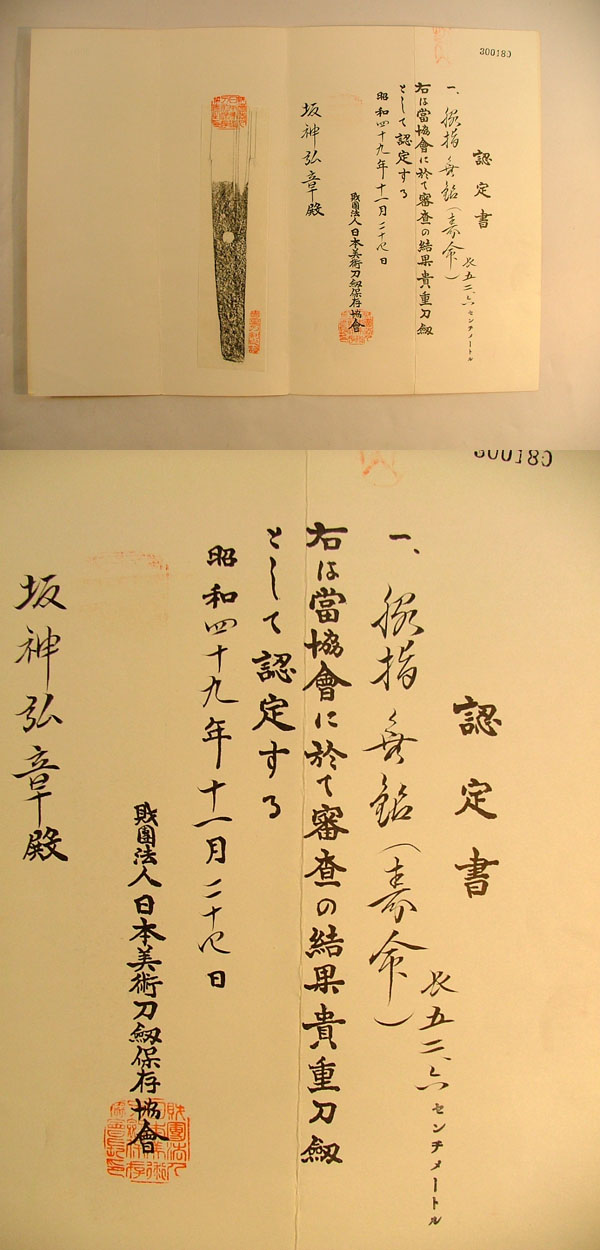 300180
認定書
一、脇指 無銘(寿命)
長五二、六センチメートル
右は當協會に於て審査の結果貴重刀劔
として認定する
昭和四十九年十一月二十日
財團法人日本美術刀劔保存協會
坂神弘章殿
300180
認定書
一、脇指 無銘(寿命)
長五二、六センチメートル
右は當協會に於て審査の結果貴重刀劔
として認定する
昭和四十九年十一月二十日
財團法人日本美術刀劔保存協會
坂神弘章殿